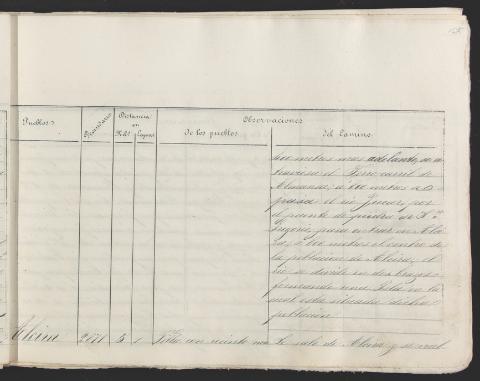 Pueblos
Vecindario
Distancia
en
Observaciones
De los pueblos
del Camino
600 metros mas adelante se a-
traviesa el Ferro-carril de
Almansa; a 600 metros se
pasa el rio Jucar, por
el puente de piedra de Sn.
para entrar en Alci-
ra, a 600 metros el centro de
la poblacion de Alcira; el
rio se divide en dos brazos
formando una Isla en la
cual esta situada dicha
poblacion
Alcira 2671 3 1 Se sale de Alcira y